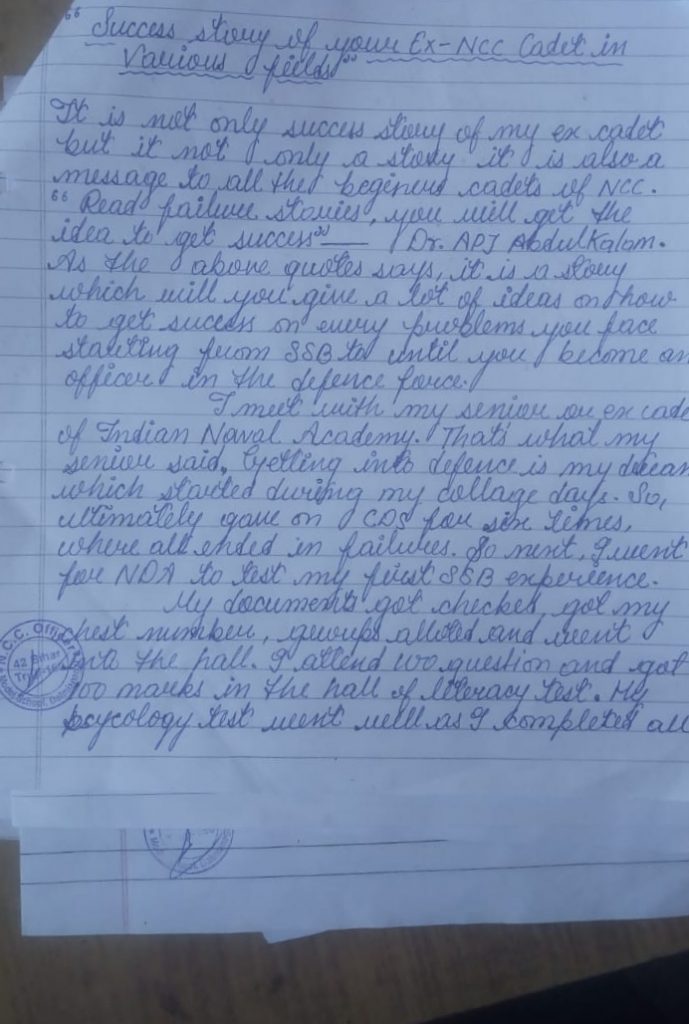 " Success story of your Ex-NCC Cadet in
Various fields"
It is not only success story of my ex cadet
but it not only a story it is also a
message to all the beginers cadets of NCC.
" Read failure stories, you will get the
idea to get success" — Dr. APJ Abdulkalam.
As the above quotes says, it is a story
which will you give a lot of ideas on how
to get success on every problems you face
starting from SSB to until you become an
officer in the defence force.
I meet with my senior or ex cade
of Indian Naval Academy. That's what my
senior said, Getting into defence is my drean
which started during my collage days. So,
ultimately gave on CDS for six times,
where all ended in failures. So next, I went
for NDA to test my first SSB experience.
My documents got checked, got my
chest number, groups alloted and went
into the hall. I attend 100 question and got
100 marks in the hall of literacy test. My
psycology test went well as I completed all
N.C.C. Officer
42 Bihar